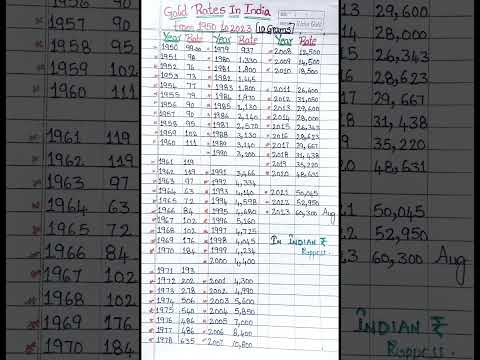 Gold Rates In India
From 1950 to 2023 (10 Grams)
Year Rate Year Rate Year Rate
1950 99.00 1979 937 2008 12,500
1951 98 1980 1,330 2009 14,500
1952 76 1981 1,800 2010 18,500
1953 73 1982 1,645
1954 77 1983 1,800 2011 26,400
1955 79 1984 1,970 2012 31,050
1956 90 1985 2,130 2013 29,600
1957 90 1986 2,140 2014 28,000
1958 95 1987 2,570 2015 26,343
1959 102 1988 3,130 2016 28,623
1960 111 1989 3,140 2017 29,667
1990 3,200 2018 31,438
1961 119 2019 35,220
1962 119 1991 3,466 2020 48,631
1963 97 1992 4,334
1964 63 1993 4,140 2021 50,045
1965 72 1994 4,598 2022 52,950
1966 84 1995 4,680 2023 60,300 Aug
1967 102 1996 5,160
1968 102 1997 4,725
1969 176 1998 4,045 In INDIAN ₹
1970 184 1999 4,234 Rupees
2000 4,400
1971 193
1972 202 2001 4,300
1973 278 2002 4,990
1974 506 2003 5,600
1975 540 2004 5,850
1976 486 2005 7,000
1977 486 2006 8,400
1978 635 2007 10,800